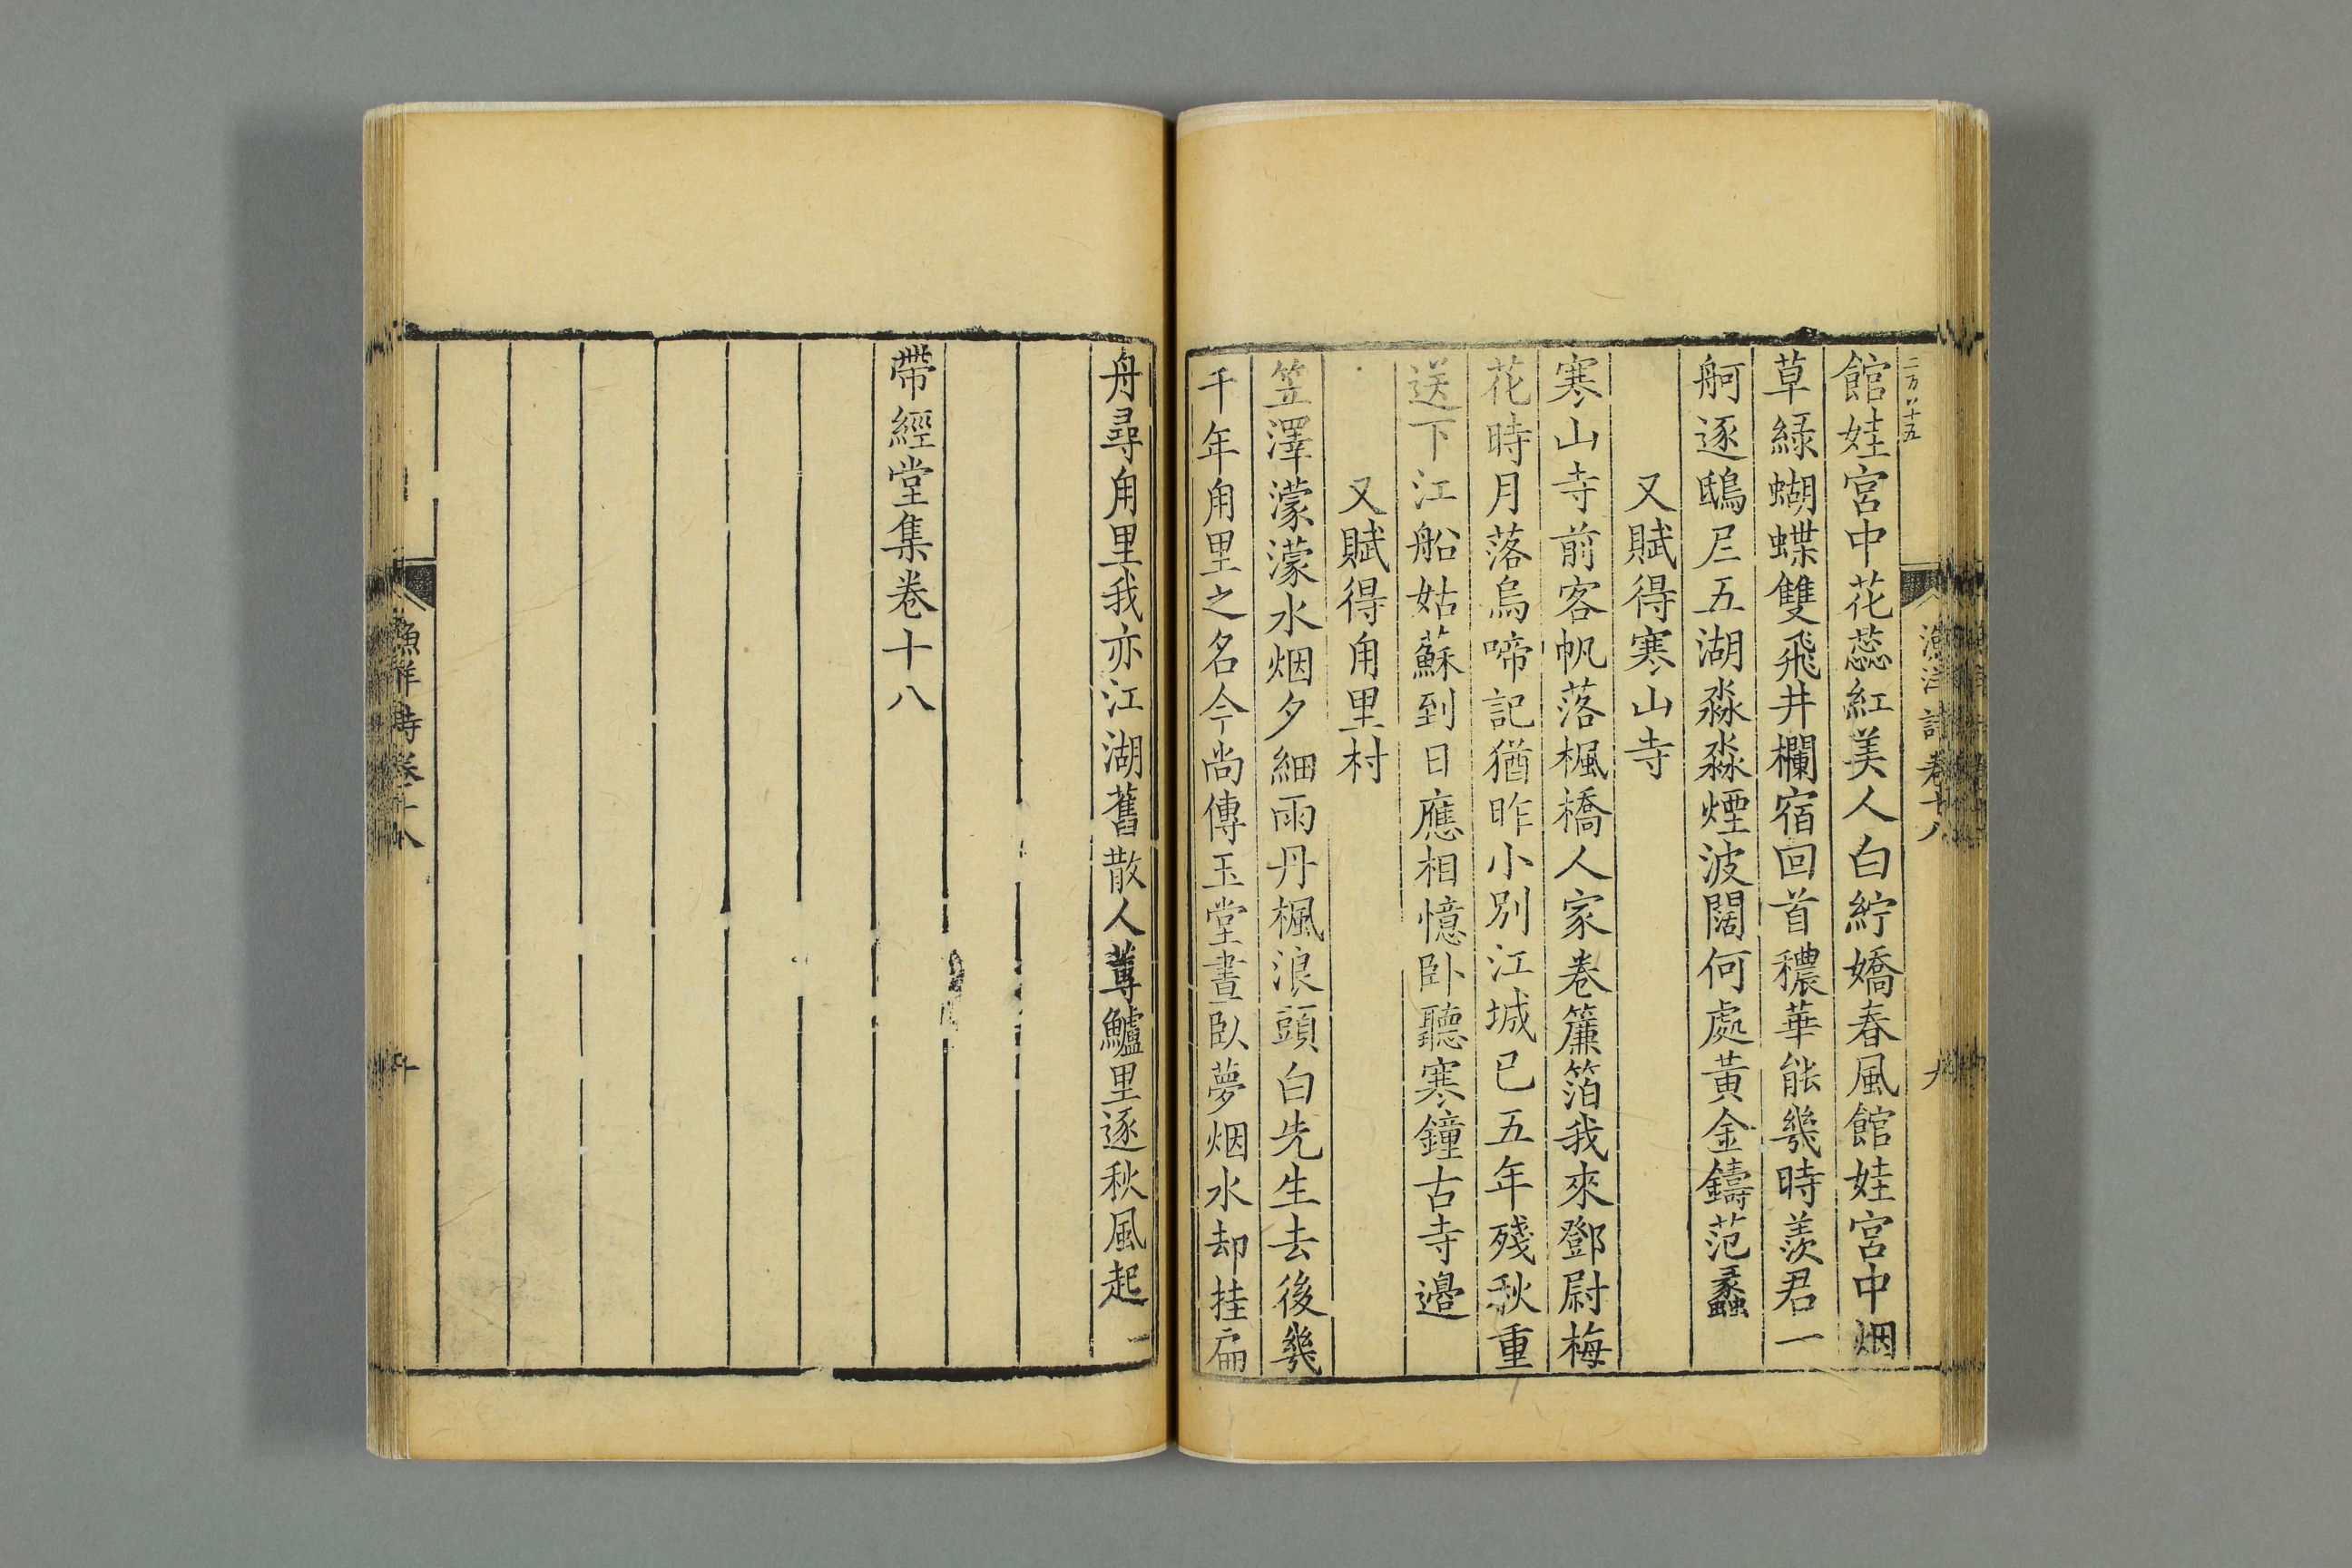 二百八十五
漁洋詩卷十八
九
館娃宮中花蕊紅美人白紵嬌春風館娃宮中烟
草綠蝴蝶雙飛井欄宿回首穠華能幾時羨君一
舸逐鴟𡰥五湖淼淼煙波闊何處黃金鑄范蠡
又賦得寒山寺
寒山寺前客帆落楓橋人家卷簾箔我來鄧尉梅
花時月落烏啼記猶昨小別江城已五年殘秋重
送下江船姑蘇到日應相憶卧聽寒鐘古寺邉
又賦得甪里村
笠澤濛濛水烟夕細雨丹楓浪頭白先生去後幾
千年甪里之名今尚傳玉堂晝臥夢烟水却挂扁
舟尋甪里我亦江湖舊散人蓴鱸里逐秋風起
帶經堂集卷十八
漁洋詩卷十八